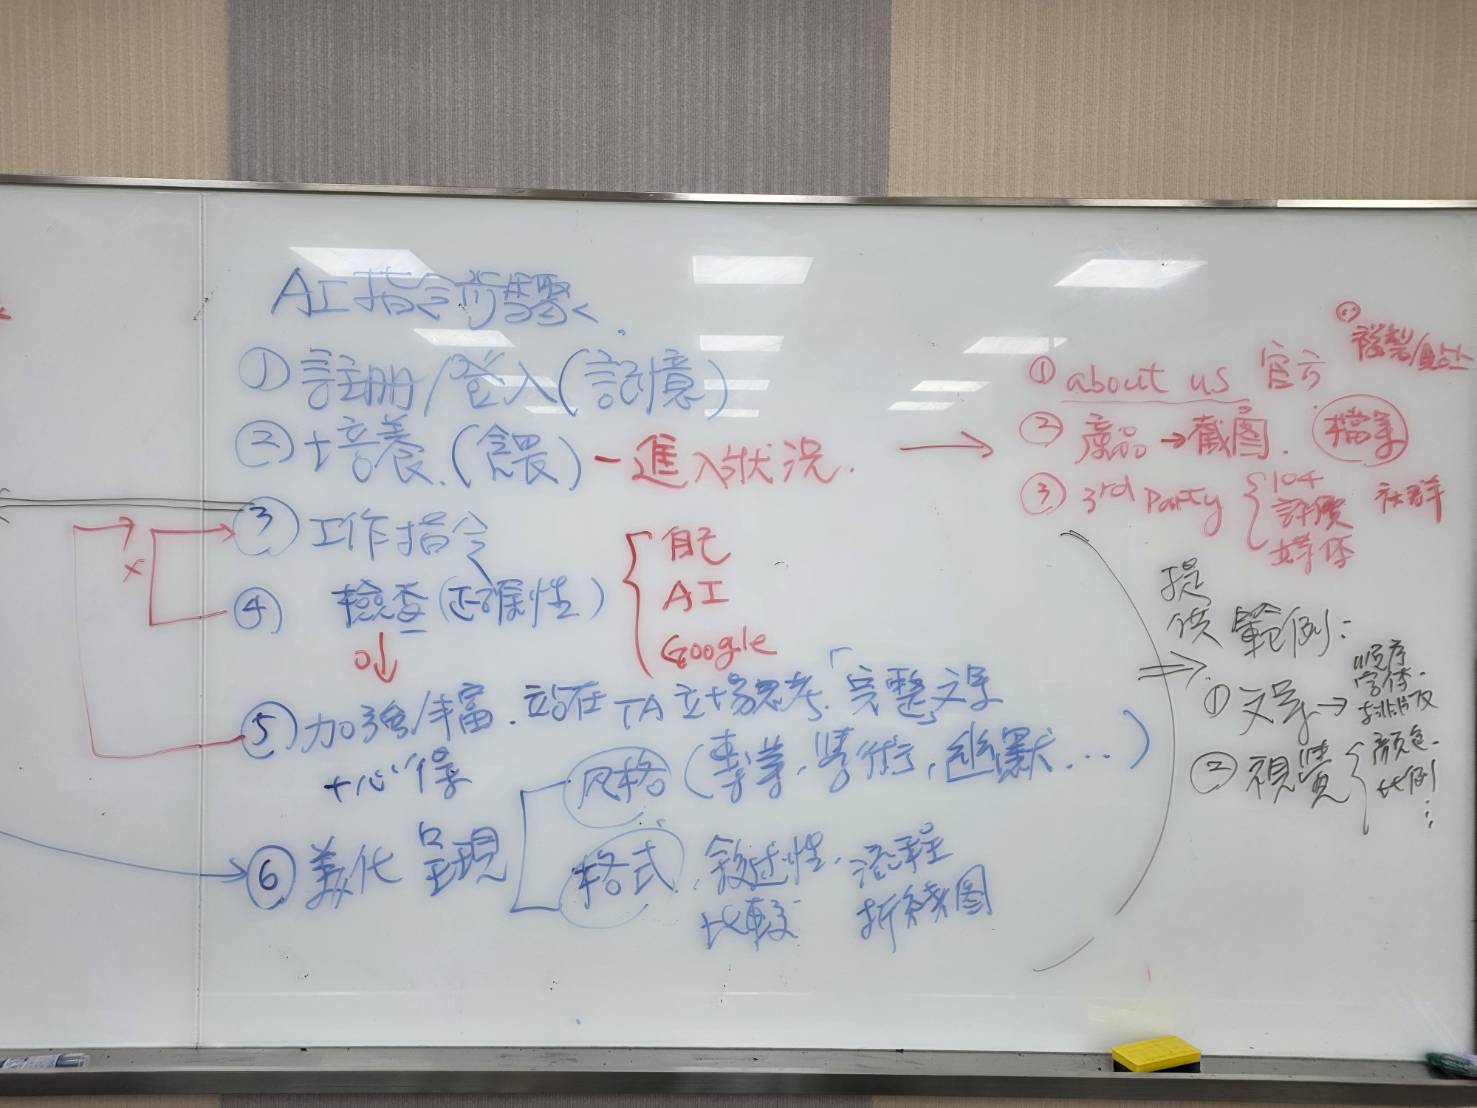 AI指令步驟
① 註冊/登入(記憶)
② 培養.(餵)-進入狀況.
③ 工作指令
④ 檢查(正確性)
自己
AI
Google
⑤ 加強/豐富.站在TA立場思考.「完整」文字
+心得
⑥ 美化 呈現
風格(專業,學術,幽默...)
格式.敘述性.流程
比較 折線圖
① about us 官方
複製/貼上
② 產品→截圖.檔案
③ 3rd Party
104
評價
媒体
社群
提供範例:
① 文字→
順序
字体.
排版
② 視覺
顏色.
比例
⋮